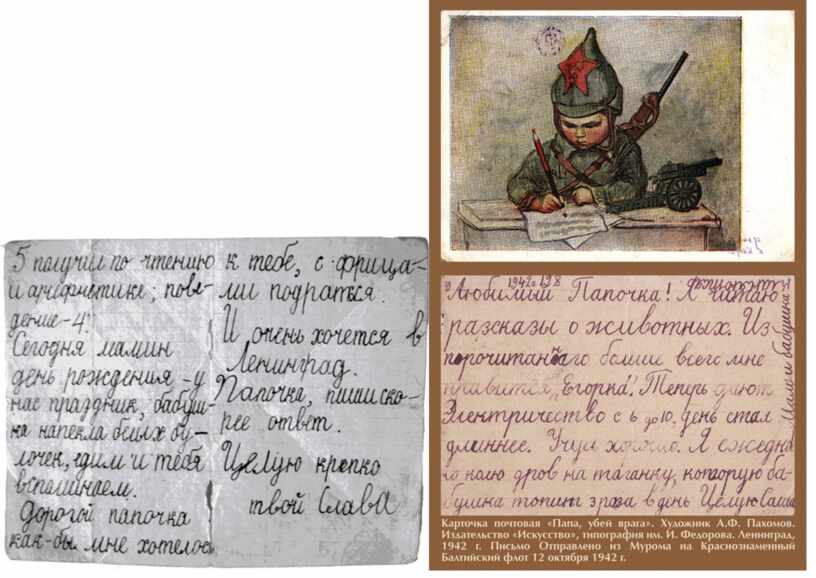 5 получил по чтению
и арифметике; пове-
дение-4.
Сегодня мамин
день рождения -у
нас праздник, бабуш-
ка напекла белых бу-
лочек, едим и тебя
вспоминаем.
Дорогой папочка
как-бы мне хотелось
к тебе, с фрица-
ми подраться.
И очень хочется в
Ленинград.
Папочка, пиши ско-
рее ответ.
Целую крепко
твой Слава
1942
Любимый Папочка! Я читаю
разсказы о животных. Из
больше всего мне
нравится "Егорка". Теперь дают
Электричество с 6 до 10. день стал
длиннее. Учусь хорошо. Я
колю дров на таганку, которую ба-
бушка топит 3 раза в день Целую Саша
Карточка почтовая «Папа, убей врага». Художник А.Ф. Пахомов.
Издательство «Искусство», типография им. И. Федорова. Ленинград,
1942 г. Письмо Отправлено из Мурома на Краснознаменный
Балтийский флот 12 октября 1942 г.